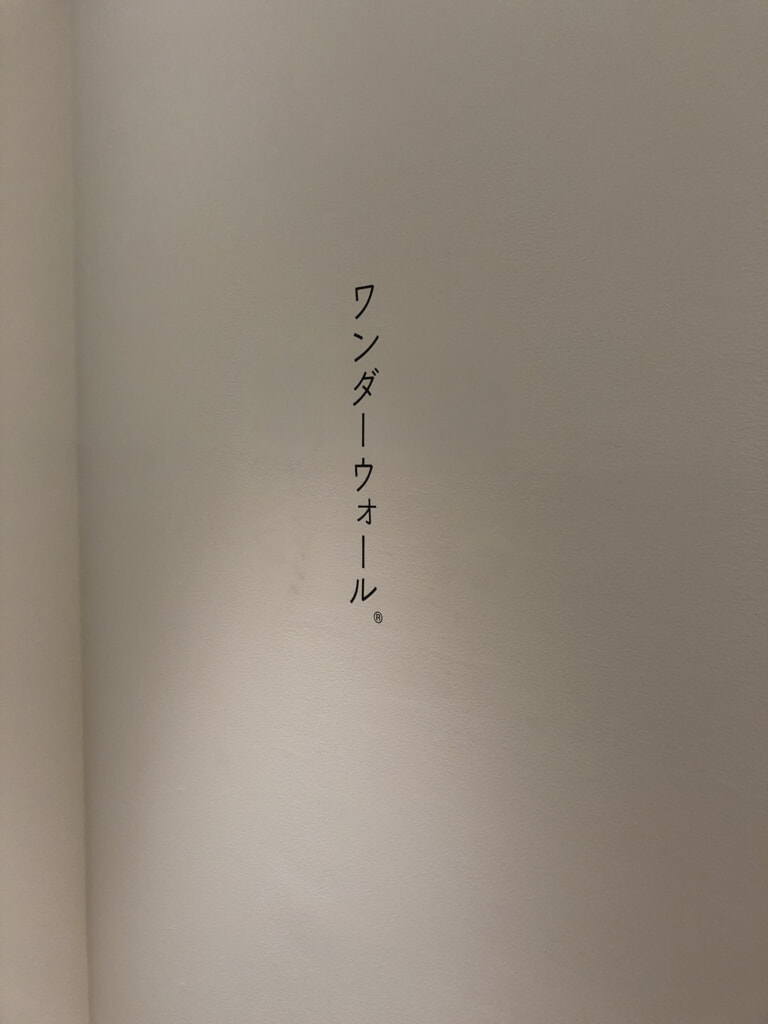 ワンダーウォール®